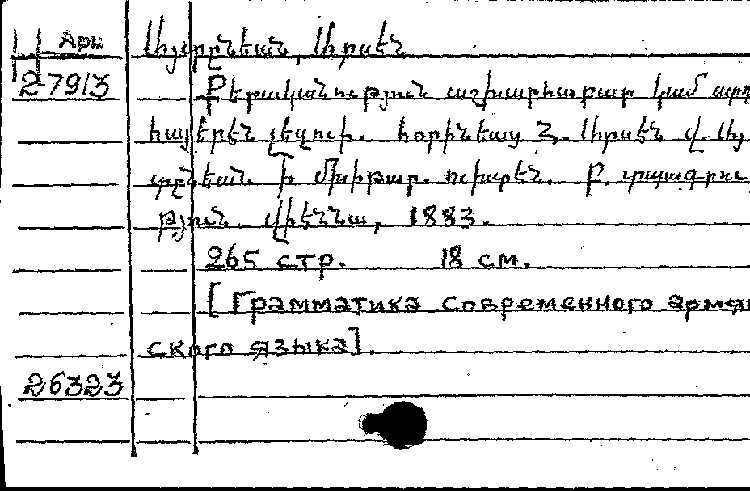 Арм Այտընեան, Արսէն
27913 Քերականություն աշխարհաբար կամ արդ
հայերէն լեզուի. հորինեալ Հ. Արսէն վ. Այ
տընեան ի Մխիթար. ուխտէն. Բ. տպագրու
թյուն. Վիեննա, 1883.
265 стр. 18 см.
[Грамматика современного армян
ского языка].
26323